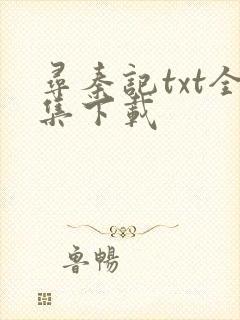 尋秦記txt全
集下載
魯暢